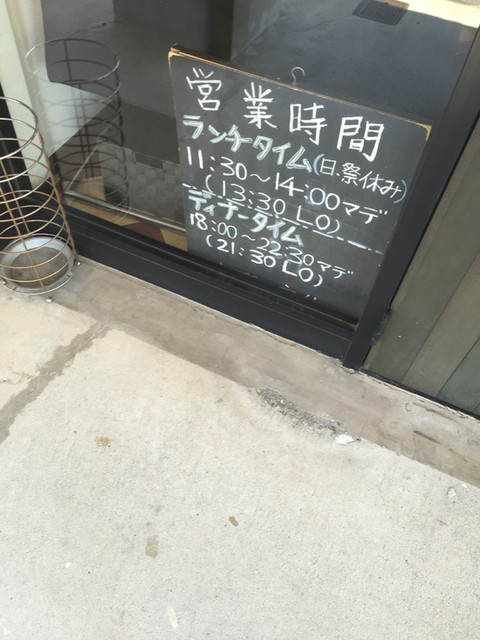 営業時間
ランチタイム(日.祭休み)
11:30〜14:00マデ
(13:30LO)
ディナータイム
18:00〜22:30マデ
(21:30LO)